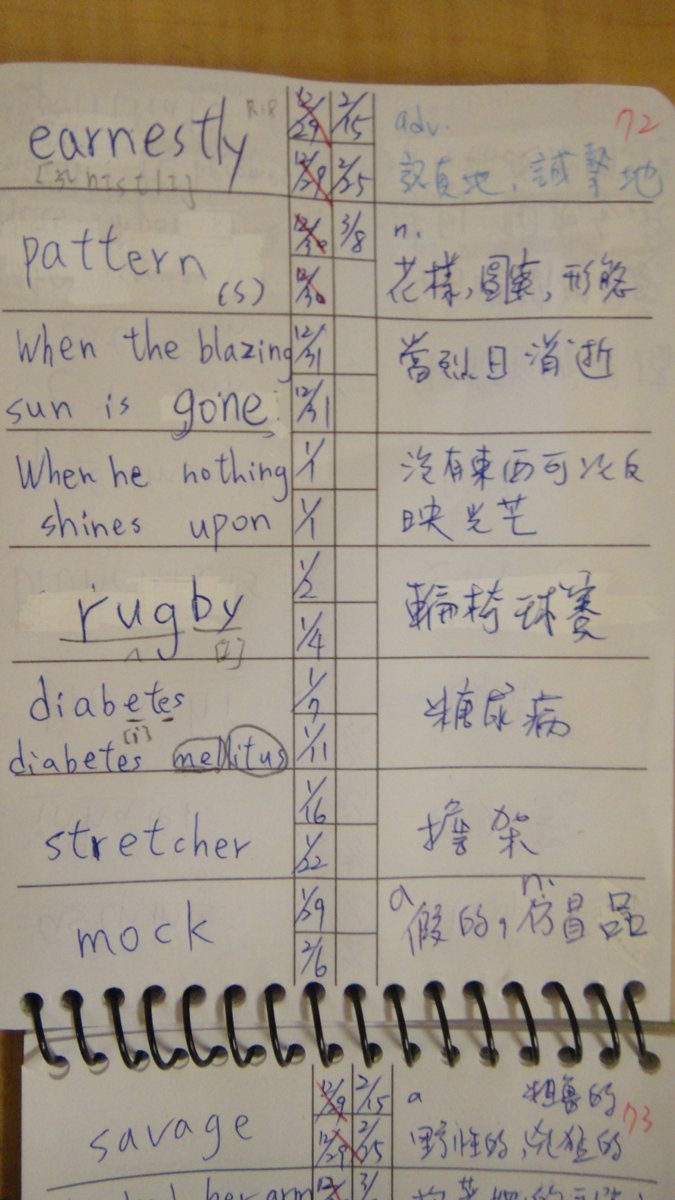 earnestly 12/29 2/15 adv. 72
12/29 2/25 認真地,誠摯地
pattern 3/8 n.
(s) 12/30 花樣,圖案,形態
When the blazing 12/31 當烈日消逝
sun is gone 12/31
When he nothing 1/1 沒有東西可以反
shines upon 1/1 映光芒
rugby 1/2 輪椅球賽
1/4
diabetes 1/7 糖尿病
[i]
diabetes mellitus 1/11
stretcher 1/16 擔架
1/22
mock 1/29 a 假的, n. 仿冒品
2/6
savage 12/29 2/15 a 粗魯的 73
12/29 2/25 野性的,兇猛的
her arm